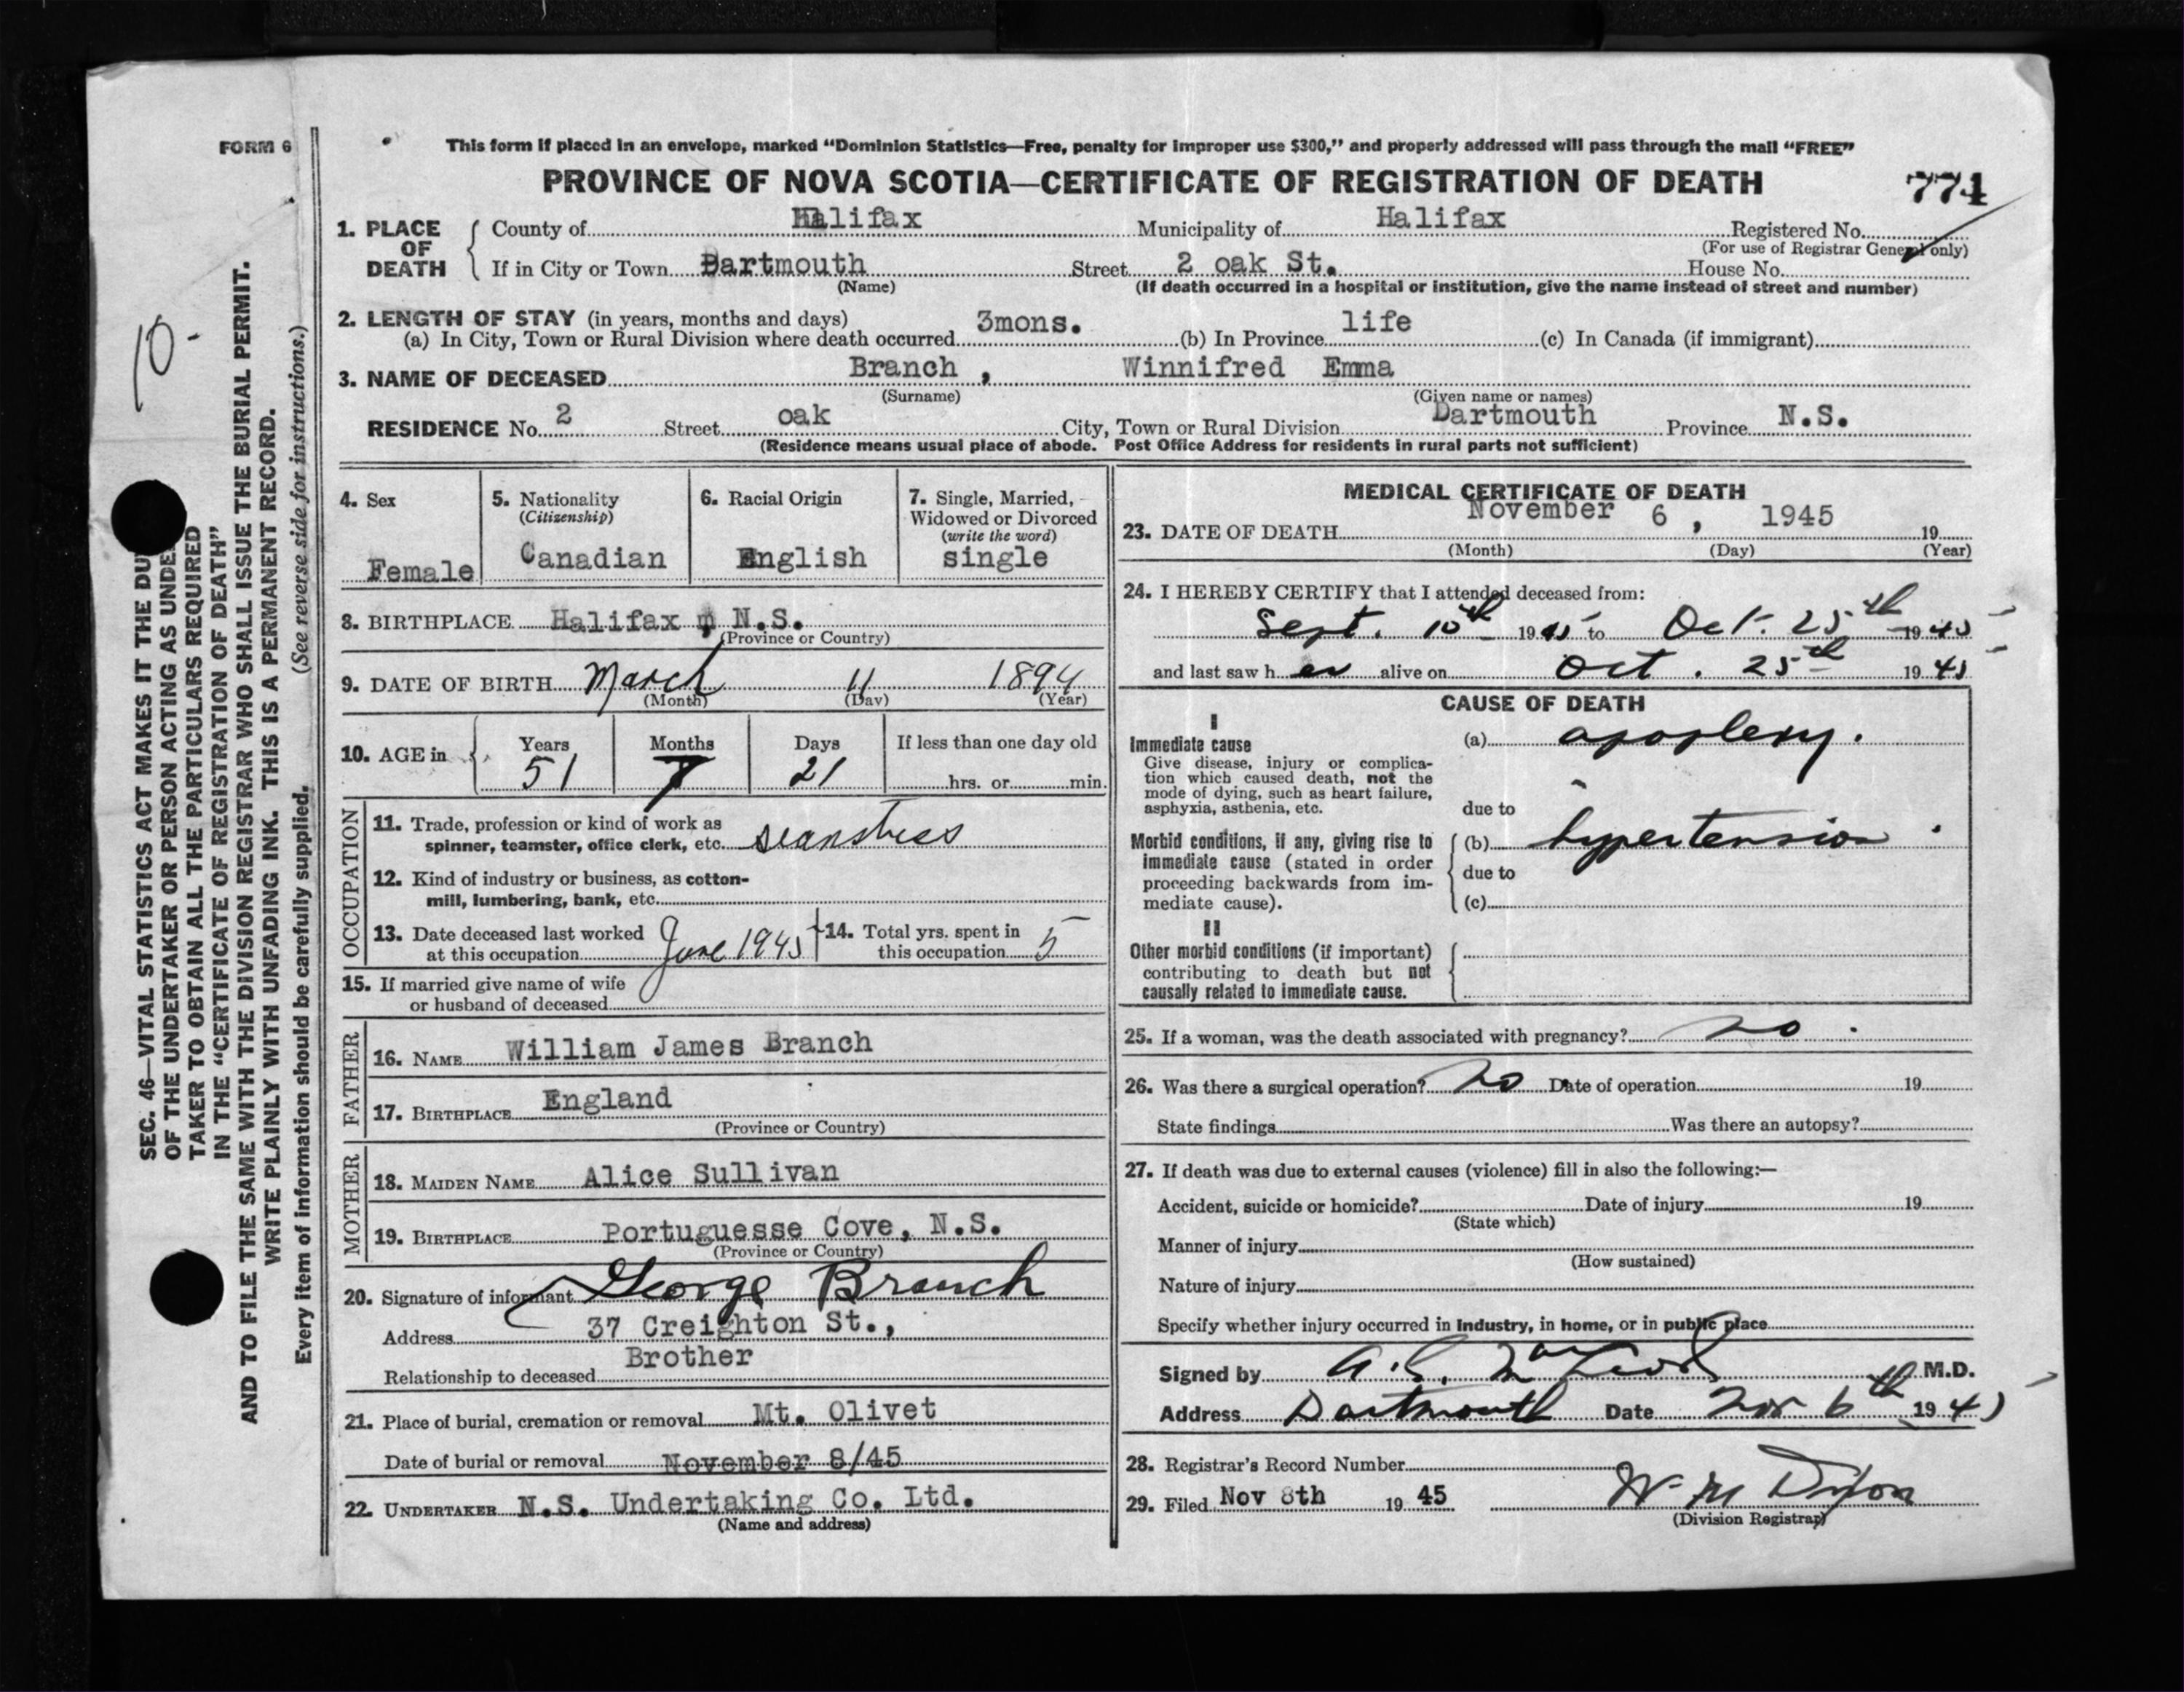 FORM 6
This form if placed in an envelope, marked “Dominion Statistics—Free, penalty for improper use $300,” and properly addressed will pass through the mail “FREE”
PROVINCE OF NOVA SCOTIA—CERTIFICATE OF REGISTRATION OF DEATH
771
1. PLACE OF DEATH County of Halifax Municipality of Halifax Registered No.
(For use of Registrar General only)
If in City or Town Dartmouth Street 2 oak St. House No.
(Name) (If death occurred in a hospital or institution, give the name instead of street and number)
2. LENGTH OF STAY (in years, months and days)
(a) In City, Town or Rural Division where death occurred 3mons. (b) In Province life (c) In Canada (if immigrant)
3. NAME OF DECEASED Branch , Winnifred Emma
(Surname) (Given name or names)
RESIDENCE No. 2 Street oak City, Town or Rural Division Dartmouth Province N.S.
(Residence means usual place of abode. Post Office Address for residents in rural parts not sufficient)
4. Sex
Female
5. Nationality
(Citizenship)
Canadian
6. Racial Origin
English
7. Single, Married,
Widowed or Divorced
(write the word)
single
8. BIRTHPLACE Halifax , N.S.
(Province or Country)
9. DATE OF BIRTH March 11 1894
(Month) (Day) (Year)
10. AGE in Years Months Days If less than one day old
51 7 21 hrs. or min.
OCCUPATION
11. Trade, profession or kind of work as
spinner, teamster, office clerk, etc. seamstress
12. Kind of industry or business, as cotton-
mill, lumbering, bank, etc.
13. Date deceased last worked
at this occupation June 1945
14. Total yrs. spent in
this occupation 5
15. If married give name of wife
or husband of deceased
FATHER
16. NAME William James Branch
17. BIRTHPLACE England
(Province or Country)
MOTHER
18. MAIDEN NAME Alice Sullivan
19. BIRTHPLACE Portuguesse Cove, N.S.
(Province or Country)
20. Signature of informant George Branch
Address 37 Creighton St.,
Relationship to deceased Brother
21. Place of burial, cremation or removal Mt. Olivet
Date of burial or removal November 8/45
22. UNDERTAKER N.S. Undertaking Co. Ltd.
(Name and address)
MEDICAL CERTIFICATE OF DEATH
23. DATE OF DEATH November 6 , 1945 19
(Month) (Day) (Year)
24. I HEREBY CERTIFY that I attended deceased from:
Sept. 10th 1945 to Oct. 25th 1945
and last saw her alive on Oct. 25th 1945
CAUSE OF DEATH
I
Immediate cause
Give disease, injury or complica-
tion which caused death, not the
mode of dying, such as heart failure,
asphyxia, asthenia, etc.
(a) apoplexy.
due to
Morbid conditions, if any, giving rise to
immediate cause (stated in order
proceeding backwards from im-
mediate cause).
(b) hypertension.
due to
(c)
II
Other morbid conditions (if important)
contributing to death but not
causally related to immediate cause.
25. If a woman, was the death associated with pregnancy? no.
26. Was there a surgical operation? no Date of operation 19
State findings Was there an autopsy?
27. If death was due to external causes (violence) fill in also the following:—
Accident, suicide or homicide? Date of injury 19
(State which)
Manner of injury
(How sustained)
Nature of injury
Specify whether injury occurred in industry, in home, or in public place
Signed by M.D.
Address Dartmouth Date Nov 6th 1945
28. Registrar's Record Number
29. Filed Nov 8th 19 45
(Division Registrar)
10-
SEC. 46—VITAL STATISTICS ACT MAKES IT THE
OF THE UNDERTAKER OR PERSON ACTING AS
TAKER TO OBTAIN ALL THE PARTICULARS REQUIRED
IN THE “CERTIFICATE OF REGISTRATION OF DEATH”
AND TO FILE THE SAME WITH THE DIVISION REGISTRAR WHO SHALL ISSUE THE BURIAL PERMIT.
WRITE PLAINLY WITH UNFADING INK. THIS IS A PERMANENT RECORD.
Every item of information should be carefully supplied. (See reverse side for instructions.)